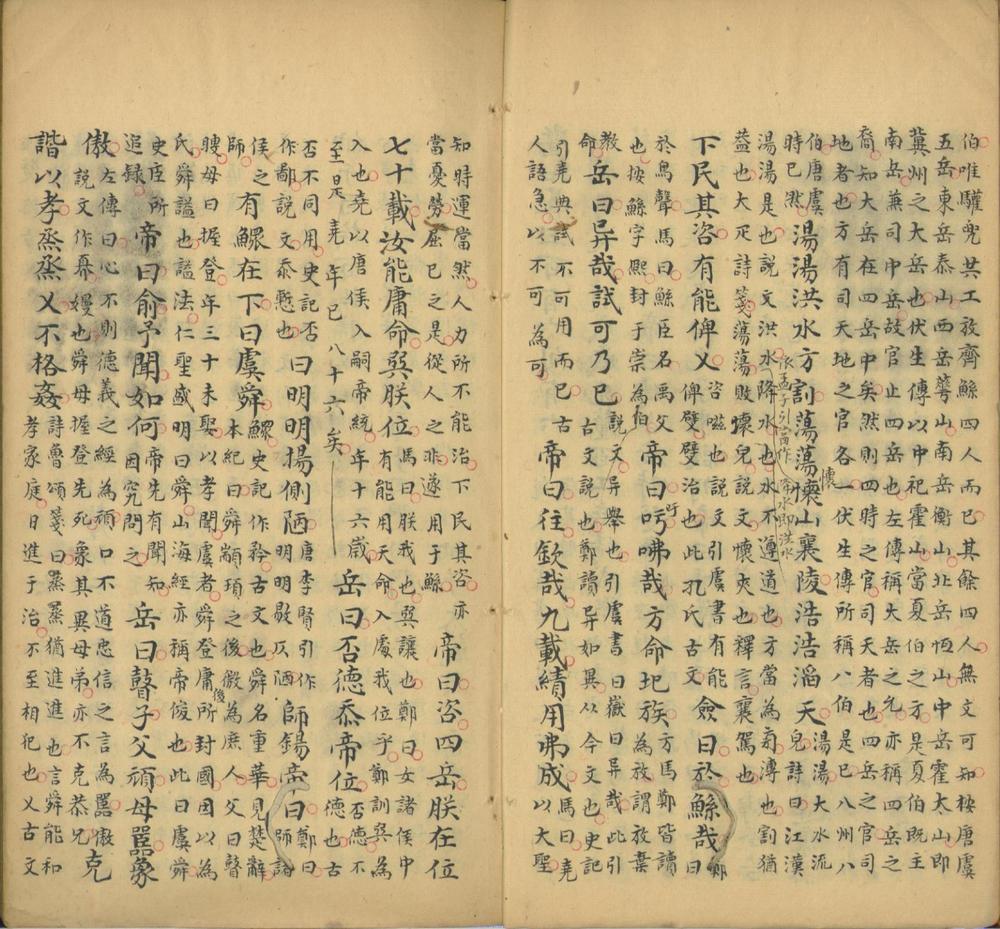 伯唯驩兜共工放齊鯀四人而已其餘四人無文可知桉唐虞
五岳東岳泰山西岳華山南岳衡山北岳恒山中岳霍太山即
冀州之大岳也伏生傳以中祀霍山當夏伯之方是夏伯既主
南岳兼司中岳故官止四岳也左傳稱大岳之允亦稱四岳之
裔知大岳在四岳中矣然則四時之官司天者也亦四岳之官司
地者也方有司天地之官各一伏生傳所稱八伯是已八州八
伯唐虞時已然湯湯洪水方割蕩蕩懷山襄陵浩浩滔天湯湯大水流皃詩曰江漢
湯湯是也說文洪水降水也水不遵道也方當為匍溥也割猶
依孟子引當作洚水即洪水
葢也大疋詩箋蕩蕩敗壞皃說文懷夾也釋言襄駕也
下民其咨有能俾乂咨嗞也說文引虞書有能俾嬖嬖治也此孔氏古文僉曰於鯀哉鄭曰
於烏聲馬曰鯀臣名禹父也桉鯀字熙封于崇為伯帝曰吁咈哉方命圯族方馬鄭皆讀為放謂放棄
教命岳曰异哉試可乃已說文异舉也引虞書曰嶽曰异哉此引古文說也鄭讀异如異从今文也史記
引堯典試不可用而已古人語急以不可為可帝曰往欽哉九載績用弗成馬曰堯以大聖
知時運當然人力所不能治下民其咨亦
當憂勞屈已之是從人之非遂用于鯀帝曰咨四岳朕在位
七十載汝能庸命巽朕位馬曰朕我也巽讓也鄭曰女諸侯中有能用天命入處我位乎鄭訓巽為
入也堯以唐侯入嗣帝統年十六歲
至是堯年已八十六矣岳曰否德忝帝位否德不德也古
否不同用史記否作鄙說文忝慙也曰明明揚側陋唐李賢引作明明敭仄陋師錫帝曰鄭曰師諸
侯之師有鰥在下曰虞舜鰥史記作矜古文也舜名重華見楚辭本紀曰舜顓頊之後微為庶人父曰瞽
瞍母曰握登年三十未娶以孝聞虞者舜登庸後所封國因以為
氏舜謚也謚法仁聖盛明曰舜山海經亦稱帝俊也此曰虞舜
史臣所追錄帝曰俞予聞如何帝先有聞知因究問之岳曰瞽子父頑母嚚象
傲左傳曰心不則德義之經為頑口不道忠信之言為嚚傲說文作奡嫚也舜母握登先死象其異母弟亦不克恭兄克
諧以孝烝烝乂不格姦詩魯頌箋曰烝烝猶進進也言舜能和孝家庭日進于治不至相犯也乂古文